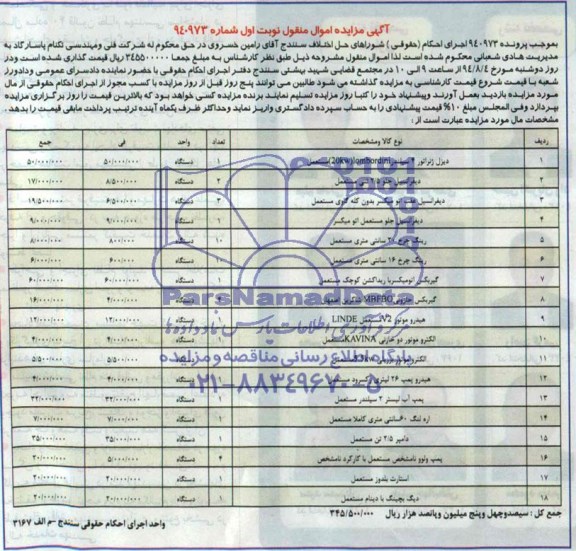 آگهی مزایده اموال منقول نوبت اول شماره ۹۴۰۹۷۳
بموجب پرونده ۹۴۰۹۷۳ اجرای احکام (حقوقی) شوراهای حل اختلاف سنندج آقای رامین خسروی در حق محکوم له شرکت فنی ومهندسی تکنام پاسارگاد به
مدیریت هادی شعبانی محکوم شده است لذا اموال منقول مشروحه ذیل طبق نظر کارشناس به مبلغ جمعا ۳۴۵۵۰۰۰۰۰ ریال قیمت گذاری شده است ودر
روز دوشنبه مورخ ۹۴/۸/۴ از ساعت ۹ الی ۱۰ در مجتمع قضایی شهید بهشتی سنندج دفتر اجرای احکام حقوقی با حضور نماینده دادسرای عمومی ودادورز
شعبه بنا قیمت شروع قیمت کارشناسی به مزایده گذاشته می شود طالبین می توانند پنج روز قبل از روز مزایده با کسب مجوز از اجرای احکام حقوقی از مال
مورد مزایده بازدید بعمل آورند وپیشنهاد خود را کتبا روز مزایده تسلیم نمایند برنده مزایده کسی خواهد بود که بالاترین قیمت را روز برگزاری مزایده
بپردازد وفی المجلس مبلغ ۱۰% قیمت پیشنهادی را به حساب سپرده دادگستری واریز نماید وحداکثر ظرف یکماه آینده ترتیب پرداخت مابقی قیمت را بدهد .
مشخصات مال مورد مزایده عبارت است از :
ردیف نوع کالا ومشخصات تعداد واحد فی جمع
۱ دیزل ژنراتور ۴ سیلندر lombordini(20kw) مستعمل ۱ دستگاه ۵۰/۰۰۰/۰۰۰ ۵۰/۰۰۰/۰۰۰
۲ دیفرانسیل مستعمل ۲ دستگاه ۸/۵۰۰/۰۰۰ ۱۷/۰۰۰/۰۰۰
۳ دیفرانسیل عقب اتو میکسر بدون کله گاوی مستعمل ۳ دستگاه ۶/۵۰۰/۰۰۰ ۱۹/۵۰۰/۰۰۰
۴ دیفرانسیل جلو مستعمل اتو میکسر ۱ دستگاه ۹/۰۰۰/۰۰۰ ۹/۰۰۰/۰۰۰
۵ رینگ چرخ ۲۰ سانتی متری مستعمل ۱۰ دستگاه ۸۰۰/۰۰۰ ۸/۰۰۰/۰۰۰
۶ رینگ چرخ ۱۶ سانتی متری مستعمل دستگاه ۶۰۰/۰۰۰ ۶/۰۰۰/۰۰۰
۷ گیربکس اتومیکسربا ریداکشن کوچک مستعمل ۱ دستگاه ۶۰/۰۰۰/۰۰۰ ۶۰/۰۰۰/۰۰۰
۸ گیربکس حلزونی MHFBO شاکرین اصفهان دستگاه ۴/۰۰۰/۰۰۰ ۱۶/۰۰۰/۰۰۰
۹ هیدرو موتور V2 مستعمل LINDE ۱ دستگاه ۱۲/۰۰۰/۰۰۰ ۱۲/۰۰۰/۰۰۰
۱۰ الکترو موتور دو خازنی KAVINA مستعمل ۱ دستگاه ۴/۰۰۰/۰۰۰ ۴/۰۰۰/۰۰۰
۱۱ الکترو موتور مستعمل ۱ دستگاه ۵/۵۰۰/۰۰۰ ۵/۵۰۰/۰۰۰
۱۲ هیدرو پمپ ۲۶ لیتری مستعمل ۱ دستگاه ۴/۰۰۰/۰۰۰ ۴/۰۰۰/۰۰۰
۱۳ پمپ آب لیستر ۲ سیلندر مستعمل ۱ دستگاه ۳۲/۰۰۰/۰۰۰ ۳۲/۰۰۰/۰۰۰
۱۴ اره لنگ ۶۰سانتی متری کاملا مستعمل ۱ دستگاه ۷/۰۰۰/۰۰۰ ۷/۰۰۰/۰۰۰
۱۵ دامپر ۲/۵ تن مستعمل ۱ دستگاه ۳۵/۰۰۰/۰۰۰ ۳۵/۰۰۰/۰۰۰
۱۶ پمپ ولوو نامشخص مستعمل با کارکرد نامشخص ۴ دستگاه ۵/۰۰۰/۰۰۰ ۲۰/۰۰۰/۰۰۰
۱۷ استارت بلدوز مستعمل ۱ دستگاه ۲۰/۰۰۰/۰۰۰ ۲۰/۰۰۰/۰۰۰
۱۸ دیگ بچینگ با دینام مستعمل ۱ دستگاه ۲۰/۰۰۰/۰۰۰ ۲۰/۰۰۰/۰۰۰
جمع کل : سیصدوچهل وپنج میلیون وپانصد هزار ریال ۳۴۵/۵۰۰/۰۰۰
واحد اجرای احکام حقوقی سنندج – م الف ۳۱۶۷
ParsNamadData
مرکز فرآوری اطلاعات پارس نماد داده ها
پایگاه اطلاع رسانی مناقصه و مزایده
۰۲۱-۸۸۳۴۹۶۷۰-۵